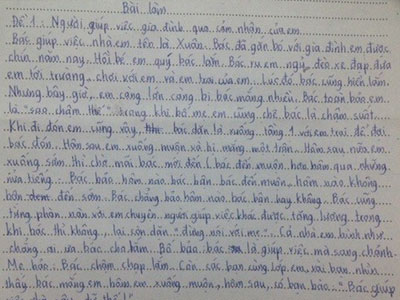 Bài làm
Đề 1: Người giúp việc gia đình qua cảm nhận của em
Bác giúp việc nhà em tên là Xuân. Bác đã gắn bó với gia đình em được
chín năm nay. Hồi bé em quý bác lắm. Bác ru em ngủ, đèo xe đạp đưa
em tới trường, chơi với em và em trai của em. Lúc đó, bác cũng hiền lắm.
Nhưng bây giờ, em càng lớn càng bị bác mắng nhiều. Bác toàn bảo em
là "sao chậm thế" trong khi bố mẹ em cũng chê bác là chậm suốt.
Khi đi đón em cũng vậy, bác dặn là xuống tầng 1 với em trai để đợi
bác đón. Hôm sau em xuống muộn và bị mắng một trận. Hôm sau nữa em
xuống sớm thì chờ mãi bác mới đến (bác đến muộn hơn hôm qua những
nửa tiếng. Bác bảo hôm nào bác bận bác đến muộn, hôm nào không
bận đem đến sớm. Bác chẳng bảo hôm nào bác bận hay không. Bác cũng
từng phàn nàn với em chuyện người giúp việc khác được tăng lương trong
khi bác thì không, lại còn dặn "đừng nói với mẹ". Cả nhà em hình như
chẳng ai ưa bác cho lắm. Bố bảo bác là giúp việc mà sang chảnh.
Mẹ bảo: Bác chậm chạp lắm. Còn các bạn cùng lớp em, vài bạn nhìn
thấy bác mắng em hôm em xuống muộn, hôm sau, có bạn bảo: "Bác giúp